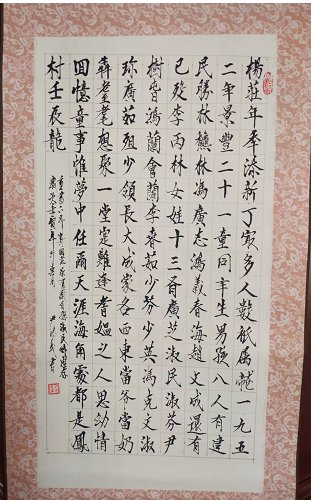 楊莊年年添新丁寅多人數祗属龍一九五
二年景豐二十一童同年生男孩八人有建
民勝林麒林馮廣志鴻義春海趙文成還有
已殁李丙林女娃十三喬廣芝淑民淑芬尹
樹香鴻蘭會蘭李春茹少芬少英馮克文淑
珍廣茹少領長大成家各西東當爷當奶
奔耄耋想聚一堂定難逢耆嫗之人思幼情
回憶童事惟夢中任爾天涯海角家都是鳳
村壬辰龍